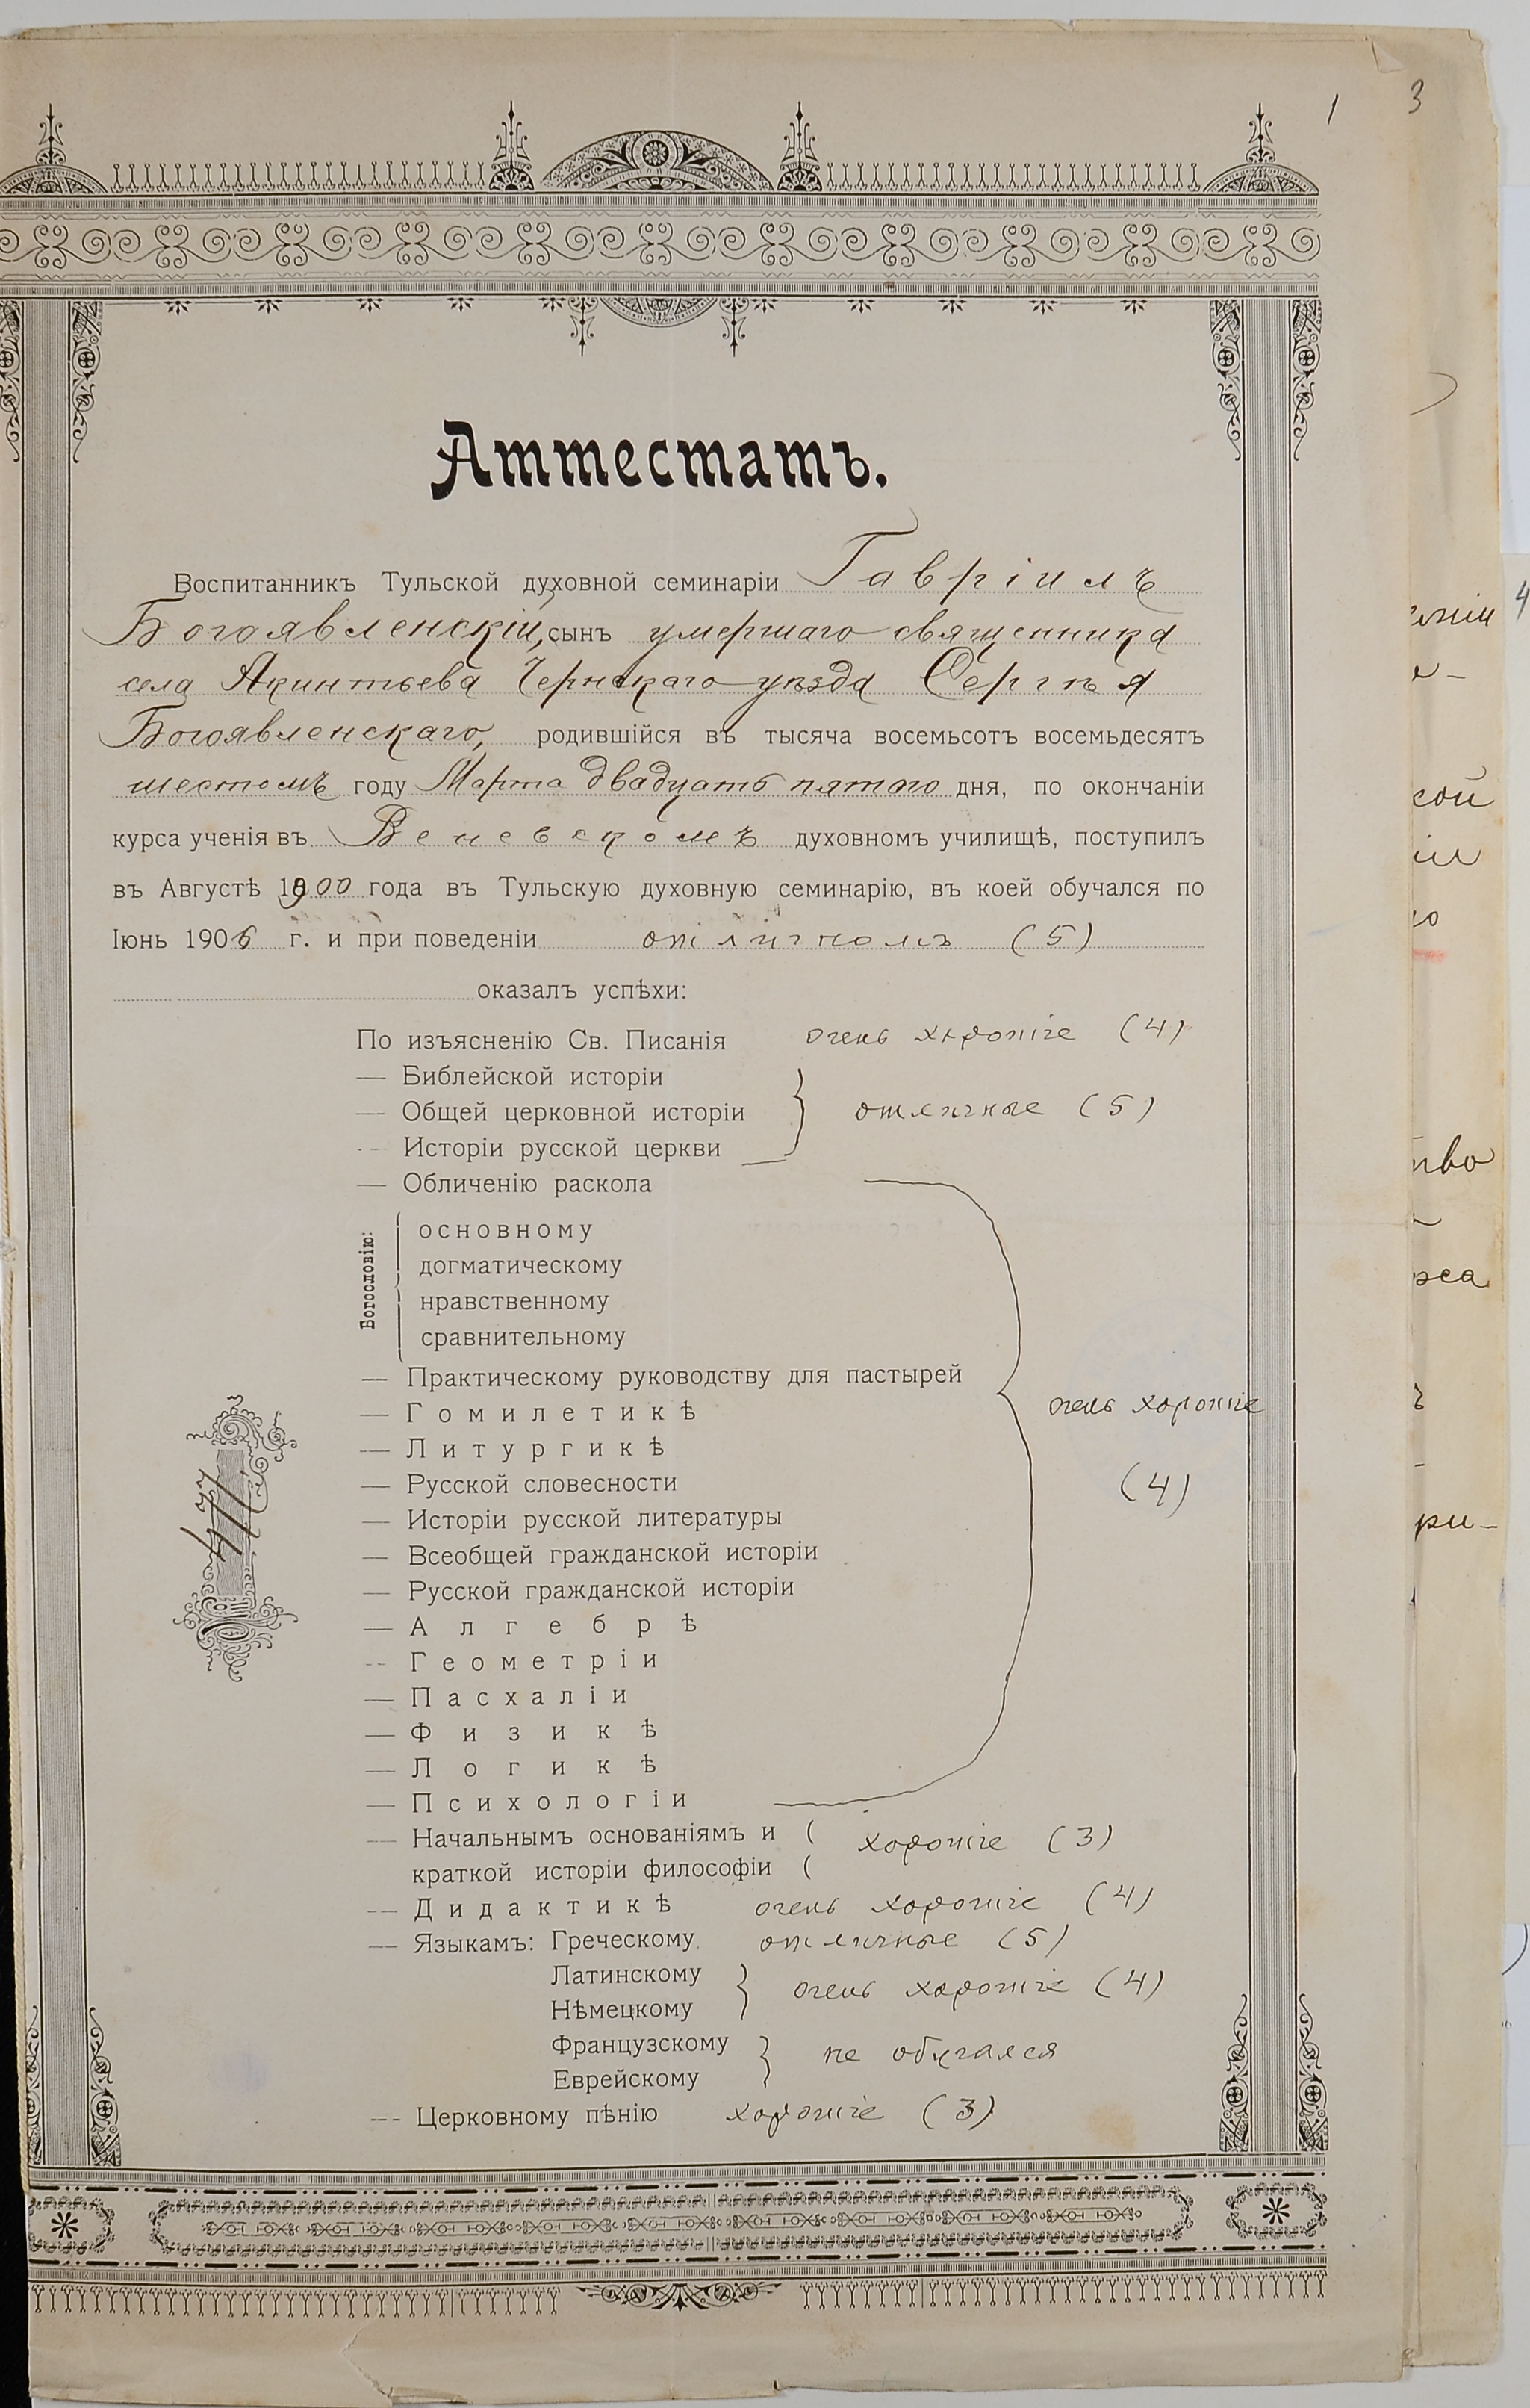 1
3
Аттестатъ.
Воспитанникъ Тульской духовной семинаріи Гавріилъ
Богоявленскій, сынъ умершаго священника
села Акинтьева Чернскаго уѣзда Сергѣя
Богоявленскаго, родившійся въ тысяча восемьсотъ восемьдесятъ
шестомъ году Марта двадцать пятаго дня, по окончаніи
курса ученія въ Веневскомъ духовномъ училищѣ, поступилъ
въ Августѣ 1900 года въ Тульскую духовную семинарію, въ коей обучался по
Іюнь 1906 г. и при поведеніи отличномъ (5)
оказалъ успѣхи:
По изъясненію Св. Писанія очень хорошіе (4)
— Библейской исторіи
— Общей церковной исторіи } отличные (5)
— Исторіи русской церкви
— Обличенію раскола
Богословію:
основному
догматическому
нравственному
сравнительному
— Практическому руководству для пастырей
— Гомилетикѣ очень хорошіе
— Литургикѣ
— Русской словесности (4)
— Исторіи русской литературы
— Всеобщей гражданской исторіи
— Русской гражданской исторіи
— Алгебрѣ
— Геометріи
— Пасхаліи
— Физикѣ
— Логикѣ
— Психологіи
— Начальнымъ основаніямъ и ( хорошіе (3)
краткой исторіи философіи (
— Дидактикѣ очень хорошіе (4)
— Языкамъ: Греческому отличные (5)
Латинскому } очень хорошіе (4)
Нѣмецкому
Французскому } не обучался
Еврейскому
— Церковному пѣнію хорошіе (3)
4
сой
тво
ри-